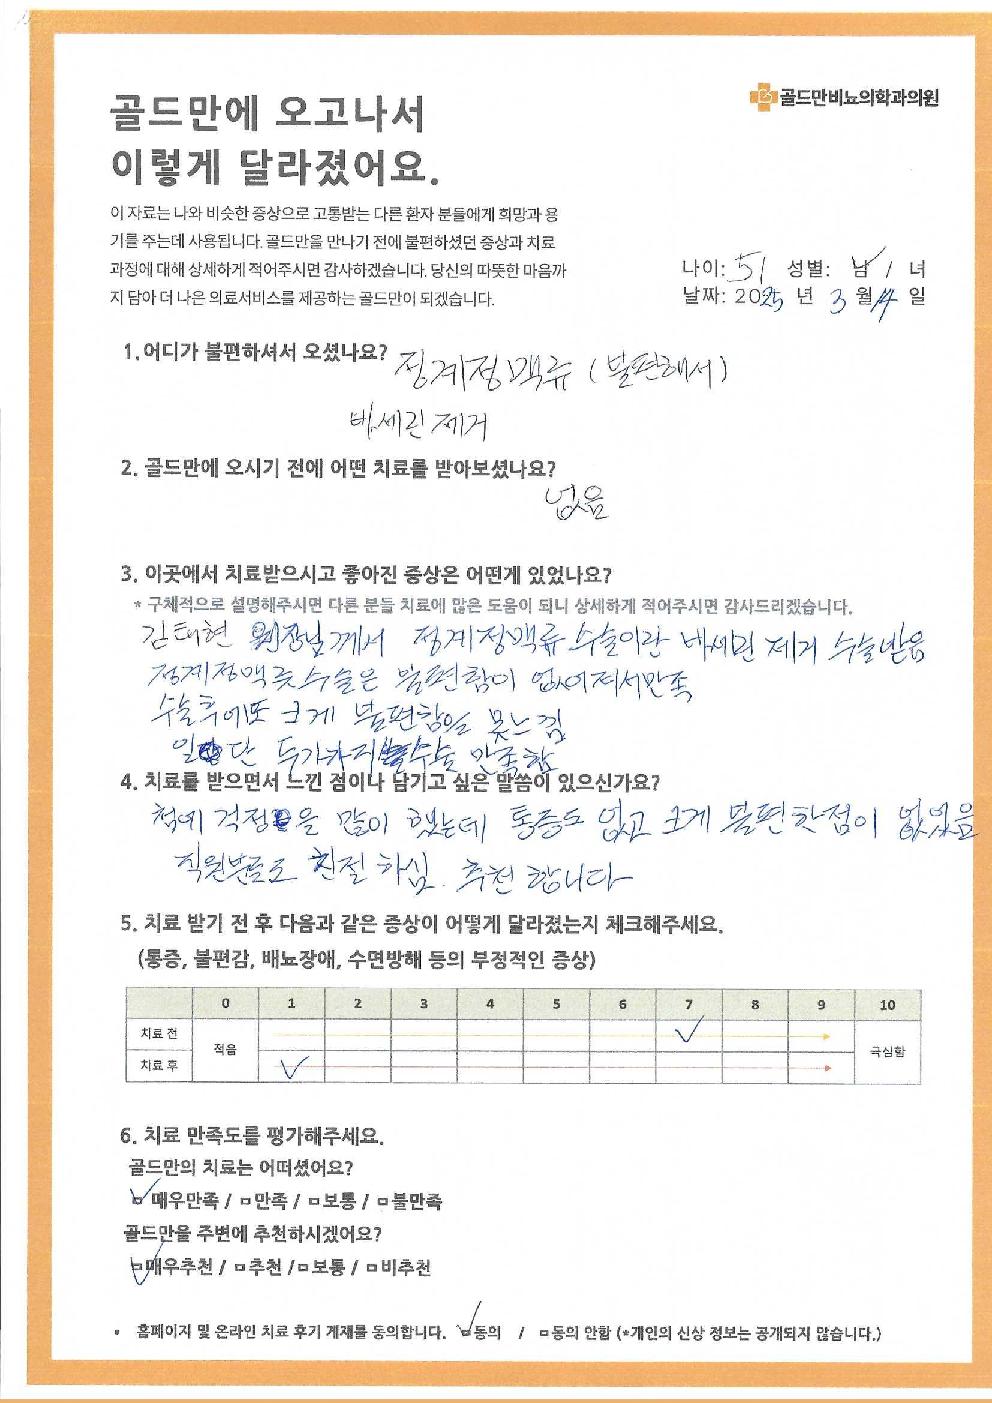 골드만비뇨의학과의원
골드만에 오고나서
이렇게 달라졌어요.
이 자료는 나와 비슷한 증상으로 고통받는 다른 환자 분들에게 희망과 용
기를 주는데 사용됩니다. 골드만을 만나기 전에 불편하셨던 증상과 치료
과정에 대해 상세하게 적어주시면 감사하겠습니다. 당신의 따뜻한 마음까
지 담아 더 나은 의료서비스를 제공하는 골드만이 되겠습니다.
나이: 51 성별: 남 / 녀
날짜: 2025 년 3 월 14 일
1. 어디가 불편하셔서 오셨나요? 정계정맥류 (불편해서)
바세린 제거
2. 골드만에 오시기 전에 어떤 치료를 받아보셨나요?
없음
3. 이곳에서 치료받으시고 좋아진 증상은 어떤게 있었나요?
* 구체적으로 설명해주시면 다른 분들 치료에 많은 도움이 되니 상세하게 적어주시면 감사드리겠습니다.
김태현 원장님께서 정계정맥류 수술이란 바세린 제거 수술받음
정계정맥륫수술은 불편함이 없어져서만족
수술후에또 크게 불편함을 못느낌
일단 두가지 수술 만족함
4. 치료를 받으면서 느낀 점이나 남기고 싶은 말씀이 있으신가요?
첨에 걱정을 많이 했는데 통증도 없고 크게 불편한점이 없었음
직원분들도 친절 하심. 추천 합니다
5. 치료 받기 전 후 다음과 같은 증상이 어떻게 달라졌는지 체크해주세요.
(통증, 불편감, 배뇨장애, 수면방해 등의 부정적인 증상)
0 1 2 3 4 5 6 7 8 9 10
치료 전
적음
극심함
치료 후
6. 치료 만족도를 평가해주세요.
골드만의 치료는 어떠셨어요?
매우만족 / □만족 / □보통 / □불만족
골드만을 주변에 추천하시겠어요?
매우추천 / □추천 /□보통 / □비추천
• 홈페이지 및 온라인 치료 후기 게재를 동의합니다. 동의 / □동의 안함 (*개인의 신상 정보는 공개되지 않습니다.)